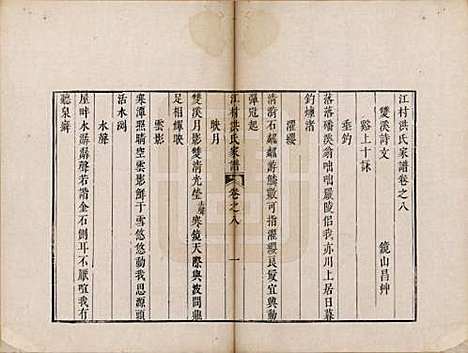 江村洪氏家譜卷之八
雙溪詩文 鏡山昌艸
谿上十詠
垂釣
落落磻溪翁咄咄嚴陵侶我亦川上居日暮
釣煙渚
濯纓
清漪石齪齪游鱗數可指濯纓良復宜興動
彈冠起
江村洪氏家譜 卷之八 一
映月
雙溪月影雙清光瑩寒鏡天際與波間
足相輝映
雲影
寒潭無晴空雲影鮮于雪悠悠動我思源頭
活水冽
水聲
屋畔水潺潺聲石諧金石側耳不厭喧我為
聽泉癖